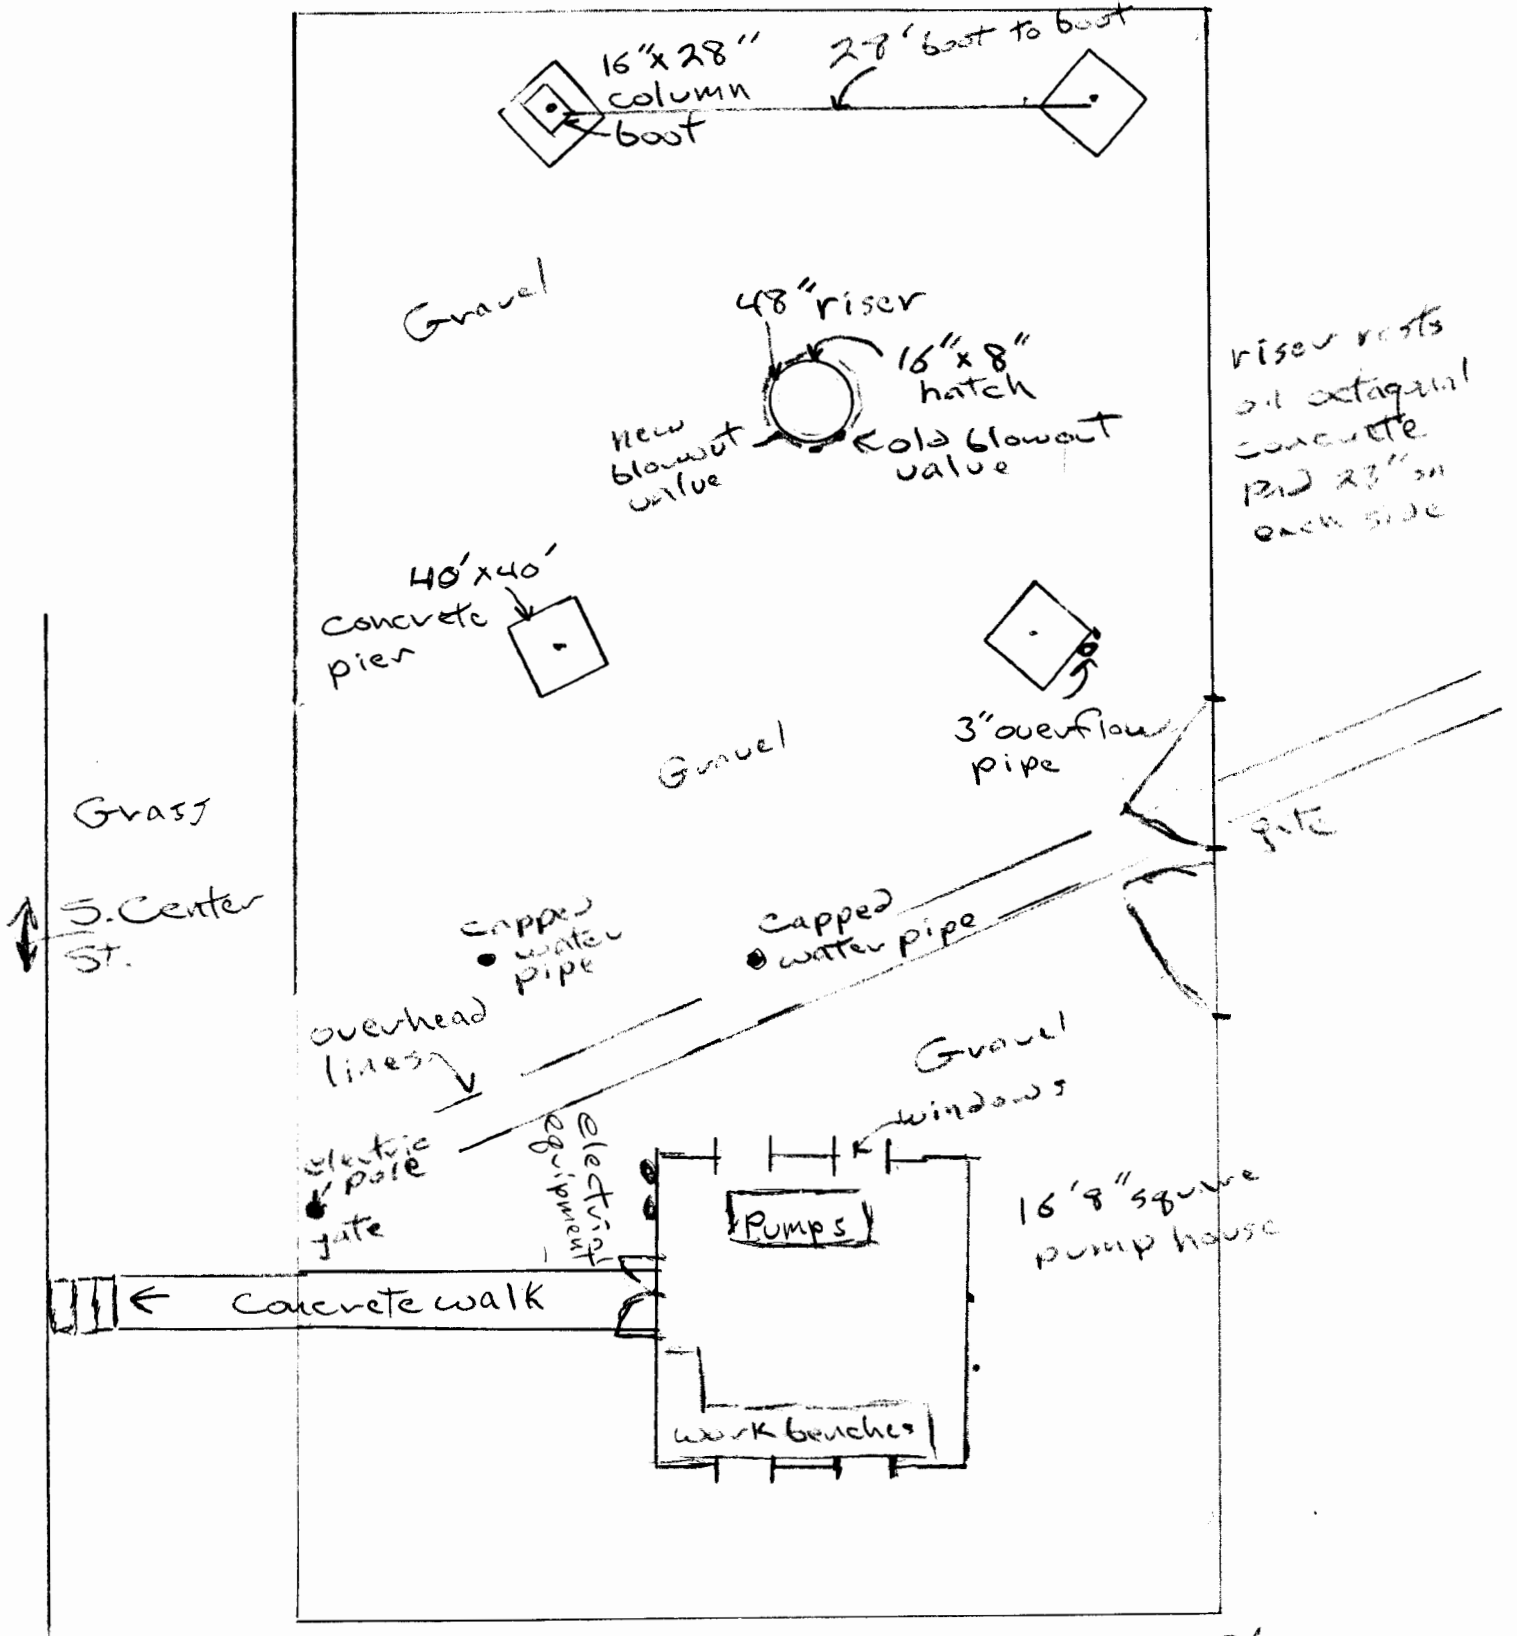 16"x28"
column
boot
28' boot to boot
Gravel
48" riser
16"x8"
hatch
new
blowout
valve
old blowout
valve
riser rests
on octagonal
concrette
pad 23" on
each side
40'x40'
concrete
pier
3" overflow
pipe
Gravel
Grass
gate
S. Center
St.
capped
water
pipe
capped
water pipe
overhead
lines
Gravel
windows
electric
pole
gate
electric
equipment
Pumps
16'8" square
pump house
← Concrete walk
work benches